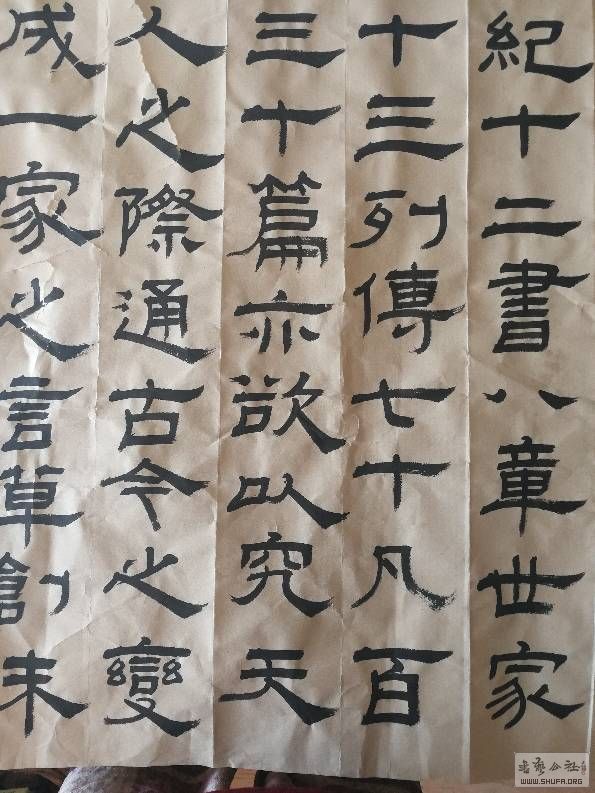 紀十二書八章世家
十三列傳七十凡百
三十篇亦欲以究天
人之際通古今之變
成一家之言草創未
WWW.SHUFA.ORG